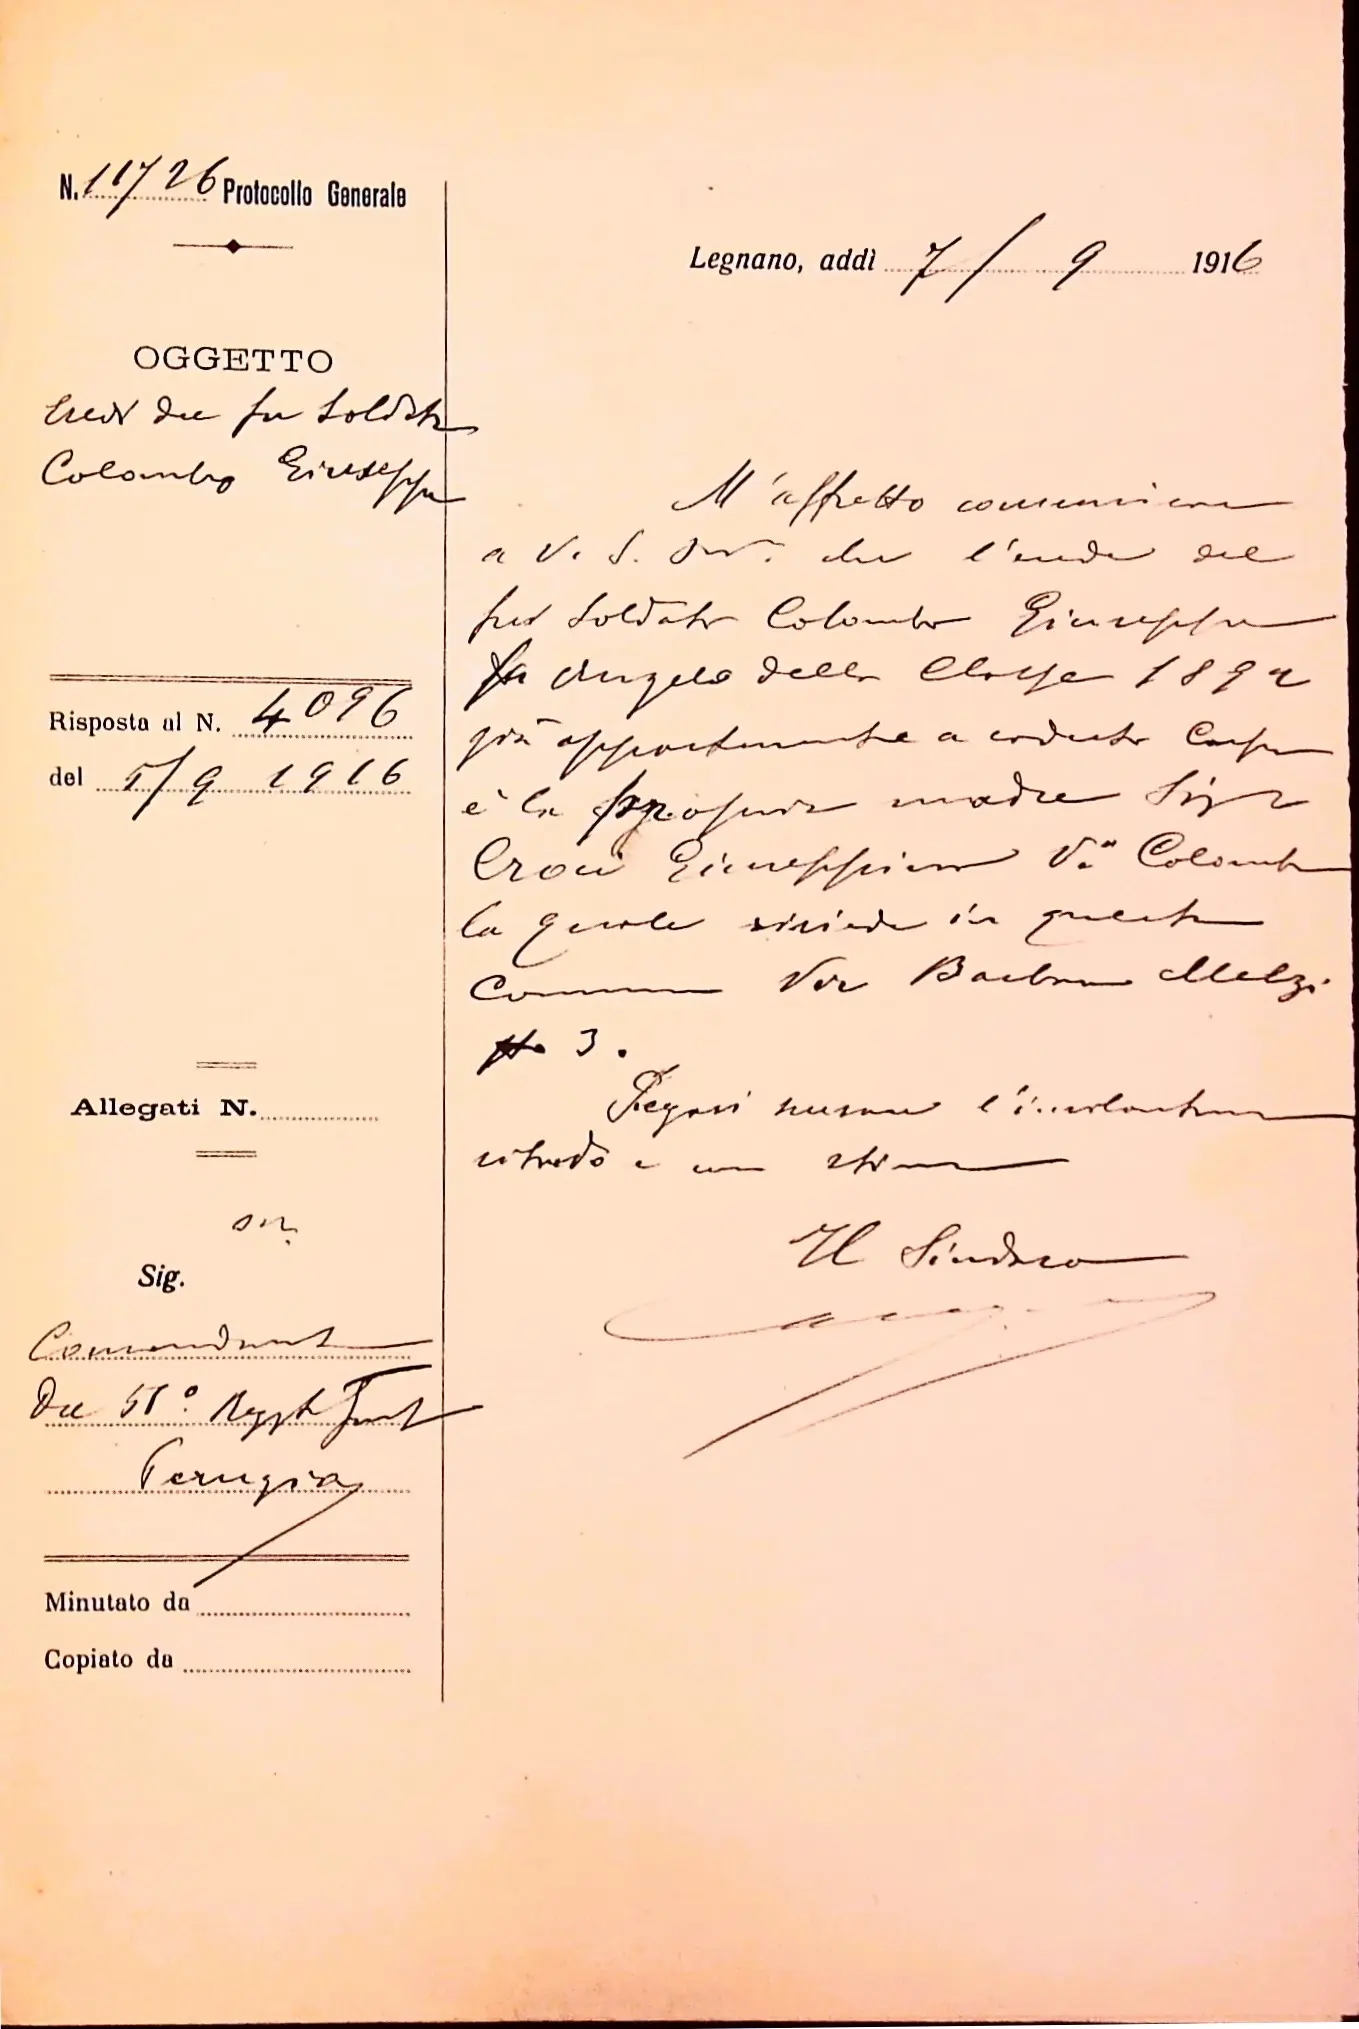 N. 11726 Protocollo Generale
OGGETTO
Eredi del fu Soldato
Colombo Giuseppe
Risposta al N. 4096
del 5/9 1916
Allegati N.
Sig.
Comandante
del 51º Reggto Fant
Perugia
Minutato da
Copiato da
Legnano, addì 7/9 1916
M'affretto comunicare
a V. S. che l'erede del
fu Soldato Colombo Giuseppe
fu Angelo della Classe 1892
già appartenente a codesto Corpo
è la propria madre Sig.ra
Croci Giuseppina V.a Colombo
la quale risiede in questo
Comune Via Barbara Melzi
No 3.
Pregasi l'
e con stima
Il Sindaco